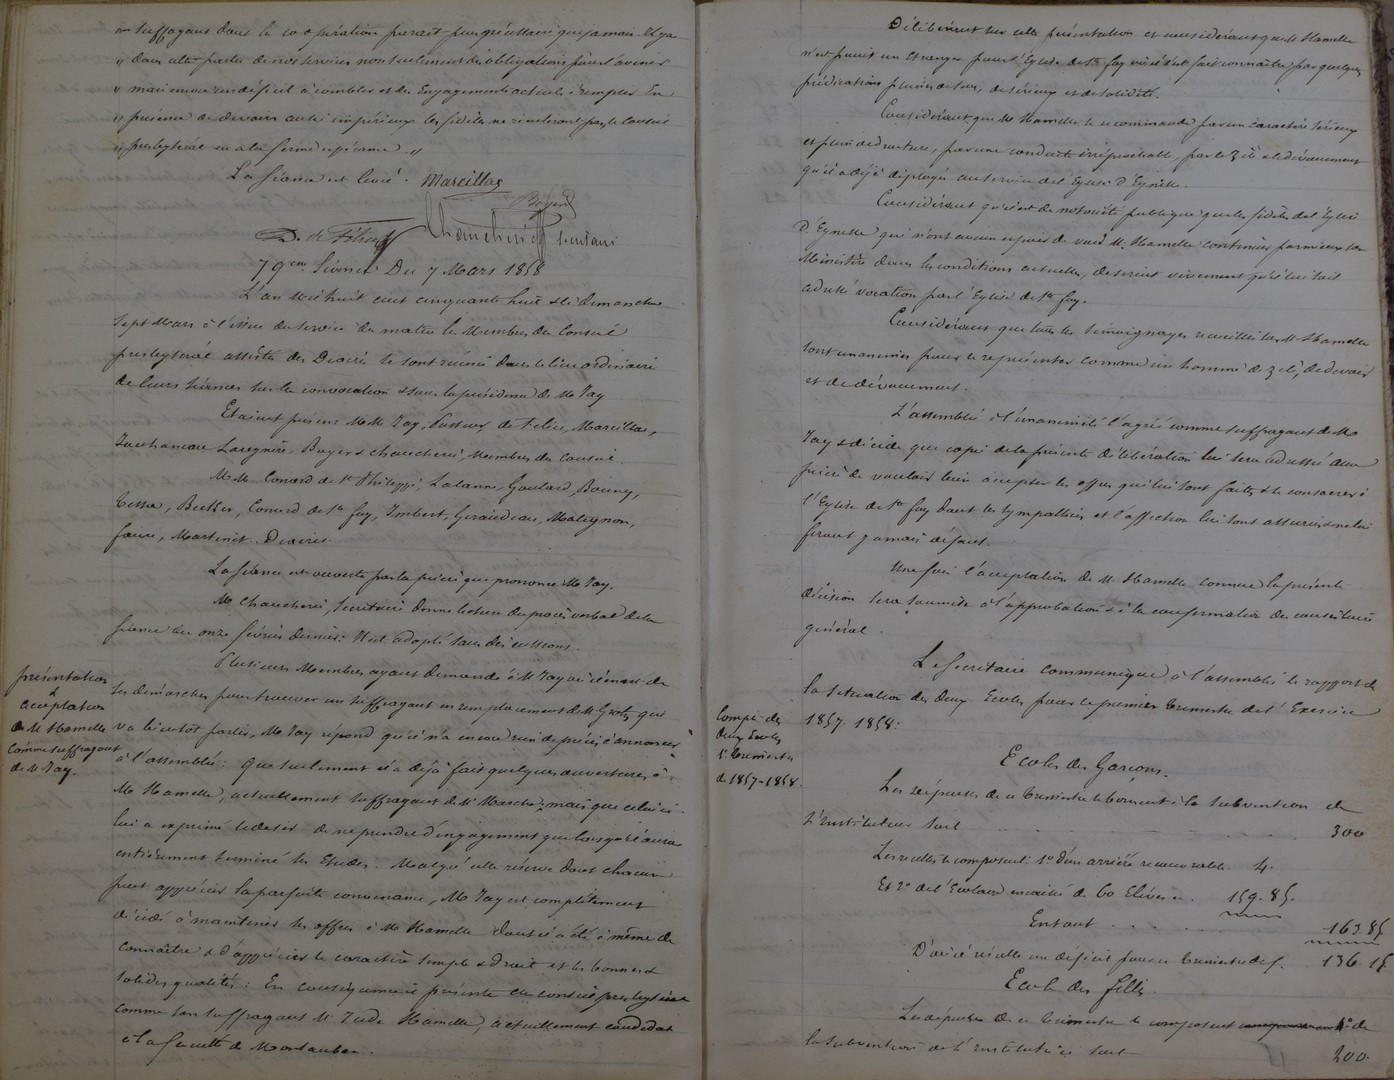 „ suffragant dans la coopération parait plus nécessaire que jamais. Il y a
„ dans cette partie de nos services non seulement des obligations pour l'avenir
„ mais encore un déficit à combler et des Engagements actuels à remplir. En
„ présence de devoirs aussi impérieux les fidèles ne reculeront pas, le Conseil
„ presbytéral en a la ferme espérance. „
La Séance est levée. Marcillac
Boyer
D. de Félice Chaucherie secrétaire
79eme Séance Du 7 Mars 1858
L'an mil huit cent cinquante huit & le dimanche
sept Mars à l'issue du service du matin les Membres du Conseil
presbytéral assistés des Diacres se sont réunis dans le lieu ordinaire
de leurs séances sur la convocation & sous la présidence de M. Jay
Etaient présens MM. Jay, Pasteur, de Félice, Marcillac,
Lavegnie, Boyer & Chaucherie, Membres du Conseil.
MM. Conord de St Philippe, Lalanne, Goulard, Bouny,
Tessié, Becker, Conord de Ste foy, Imbert, Giraudeau, Matignon,
faure, Martinet. Diacres.
La Séance est ouverte par la prière que prononce M. Jay.
M. Chaucherie, Secrétaire donne lecture du procès verbal de la
séance du onze février dernier: Il est adopté sans discussions.
présentation
&
acceptation
de M. Hamelle
comme suffragant
de M. Jay.
Plusieurs Membres ayant demandé à M. Jay où il en est de
ses démarches pour trouver un suffragant en remplacement de M. Grotz, qui
va bientôt partir, M. Jay répond qu'il n'a encore rien de précis à annoncer
à l'assemblée: que seulement il a déjà fait quelques ouvertures à
M. Hamelle, actuellement suffragant de M. Hosche; mais que celui-ci
lui a exprimé le désir de ne prendre d'engagement que lorsqu'il aura
entièrement terminé ses Etudes. Malgré cette réserve dont chacun
peut apprécier la parfaite convenance, M. Jay est complètement
décidé à maintenir ses offres à M. Hamelle dont il a été à même de
connaître & d'apprécier le caractère simple & droit et les bonnes &
solides qualités: En conséquence il présente au conseil presbytéral
comme son suffragant M. Jude Hamelle, actuellement candidat
à la faculté de Montauban.
Délibérant sur cette présentation et considérant que M. Hamelle
n'est point un étranger pour l'Eglise de Ste foy où il s'est fait connaître par quelques
prédications pleines de sens, de sérieux et de solidité.
Considérant que M. Hamelle se recommande par un caractère sérieux
et plein de droiture, par une conduite irréprochable, par le zèle et le dévouement
qu'il a déjà déployés au service de l'Eglise d'Eynesse.
Considérant qu'il est de notoriété publique que les fidèles de l'Eglise
d'Eynesse qui n'ont aucun espoir de voir M. Hamelle continuer parmi eux son
Ministère dans les conditions actuelles, désirent vivement qu'il lui soit
adressé vocation par l'Eglise de Ste foy.
Considérant que tous les témoignages recueillis sur M. Hamelle
sont unanimes pour le représenter comme un homme de zèle, de devoir
et de dévouement.
L'assemblée à l'unanimité l'agrée comme suffragant de M.
Jay & décide que copie de la présente délibération lui sera adressée avec
prière de vouloir bien accepter les offres qui lui sont faites & se consacrer à
l'Eglise de Ste foy dont les sympathies et l'affection lui sont assurées & ne lui
feront jamais défaut.
Une fois l'acceptation de M. Hamelle connue la présente
décision sera soumise à l'approbation & à la confirmation du consistoire
général.
Le Secrétaire communique à l'assemblée le rapport de
la situation des deux Ecoles pour le premier trimestre de l'Exercice
1857-1858.
Compte des
deux Ecoles
1er trimestre
de 1857-1858.
Ecole des Garçons.
Les dépenses de ce trimestre se bornent à la subvention de
l'Instituteur soit 300
Les recettes se composent: 1º d'un arriéré recouvrable 4.
Et 2º de l'Ecolage encaissé de 60 Elèves 159.85.
Entout 163.85
D'où il résulte un déficit pour ce trimestre de f. 136.15
Ecole des filles.
Les dépenses de ce trimestre se composent 1º de
la subvention de l'Institutrice soit 200